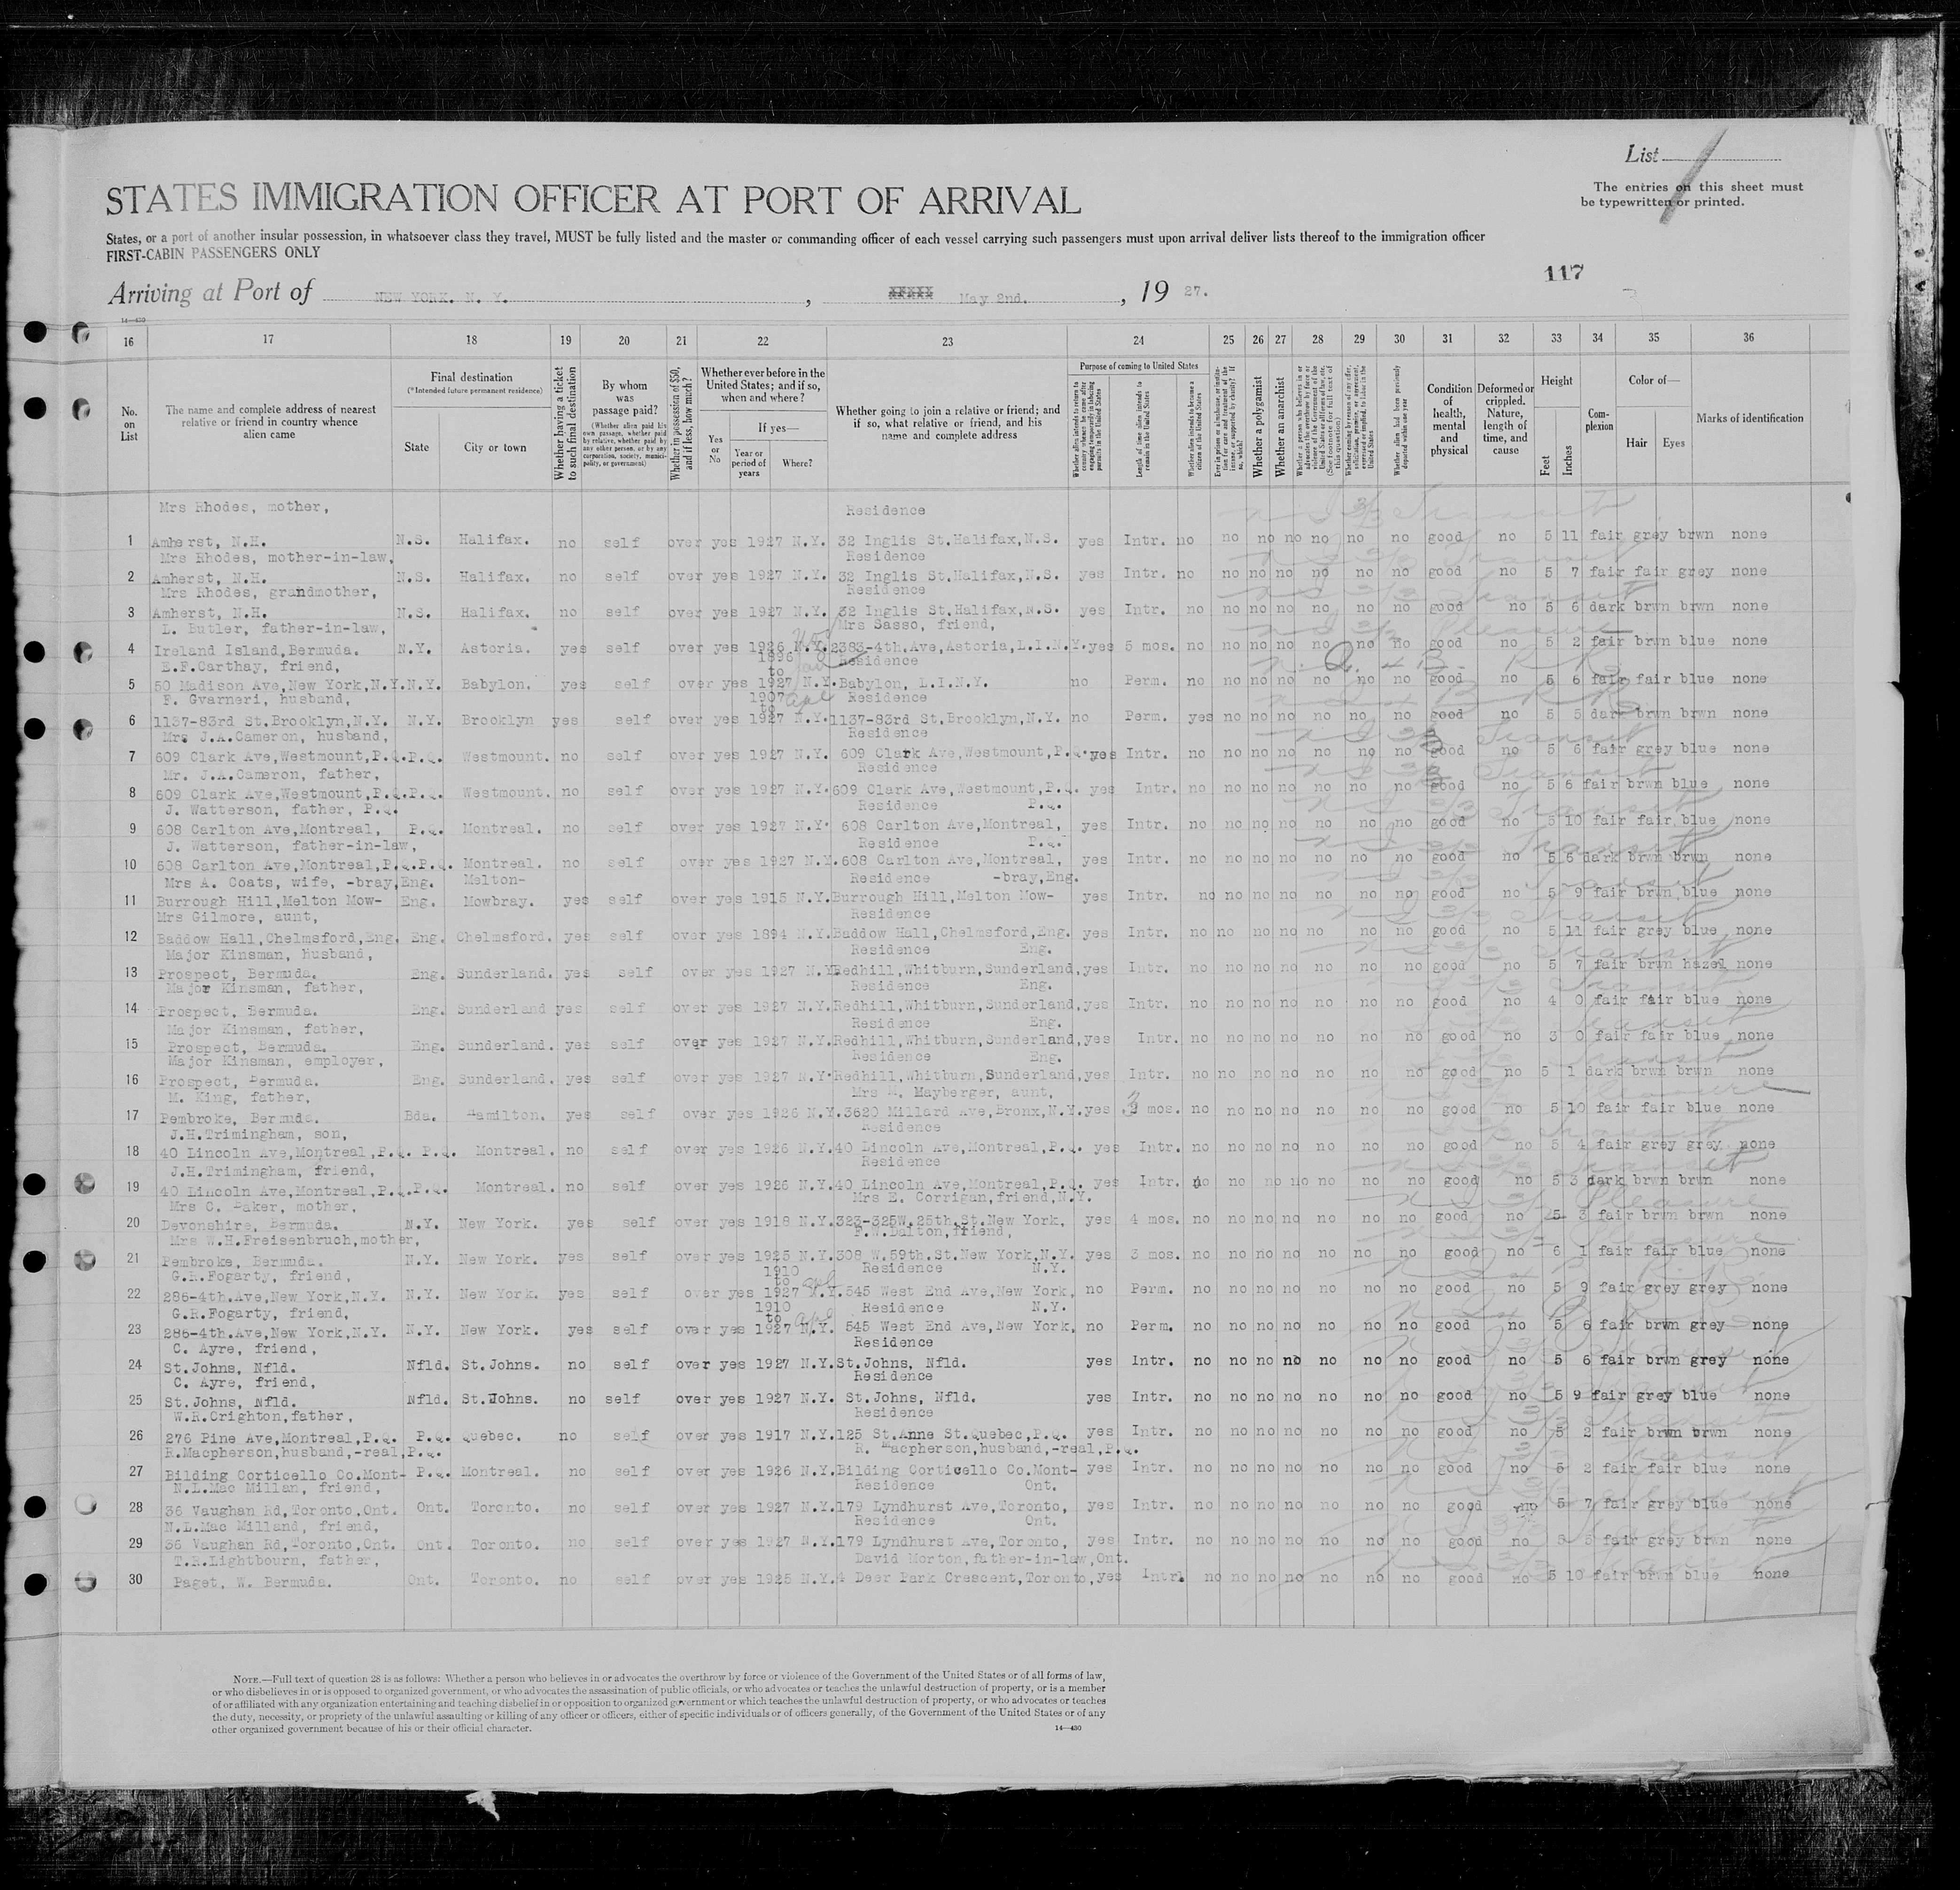 List 1
The entries on this sheet must
be typewritten or printed.
STATES IMMIGRATION OFFICER AT PORT OF ARRIVAL
States, or a port of another insular possession, in whatsoever class they travel, MUST be fully listed and the master or commanding officer of each vessel carrying such passengers must upon arrival deliver lists thereof to the immigration officer
FIRST-CABIN PASSENGERS ONLY
117
Arriving at Port of NEW YORK. N. Y. , May 2nd. , 19 27.
14—430
16 17 18 19 20 21 22 23 24 25 26 27 28 29 30 31 32 33 34 35 36
No. on List
The name and complete address of nearest relative or friend in country whence alien came
Final destination
(*Intended future permanent residence)
State City or town
Whether having a ticket to such final destination
By whom was passage paid?
(Whether alien paid his own passage, whether paid by relative, whether paid by any other person, or by any corporation, society, municipality, or government)
Whether in possession of $50, and if less, how much?
Whether ever before in the United States; and if so, when and where?
Yes or No
If yes—
Year or period of years Where?
Whether going to join a relative or friend; and if so, what relative or friend, and his name and complete address
Purpose of coming to United States
Whether alien intends to return to country whence he came after engaging temporarily in laboring pursuits in the United States
Length of time alien intends to remain in the United States
Whether alien intends to become a citizen of the United States
Whether a polygamist
Whether an anarchist
Whether alien had been previously deported within one year
Condition of health, mental and physical
Deformed or crippled. Nature, length of time, and cause
Height
Feet Inches
Complexion
Color of—
Hair Eyes
Marks of identification
Mrs Rhodes, mother, Residence
1 Amherst, N.H. N.S. Halifax. no self over yes 1927 N.Y. 32 Inglis St.Halifax,N.S. yes Intr. no no no no no no no good no 5 11 fair grey brwn none
Mrs Rhodes, mother-in-law, Residence
2 Amherst, N.H. N.S. Halifax. no self over yes 1927 N.Y. 32 Inglis St.Halifax,N.S. yes Intr. no no no no no no no good no 5 7 fair fair grey none
Mrs Rhodes, grandmother, Residence
3 Amherst, N.H. N.S. Halifax. no self over yes 1927 N.Y. 32 Inglis St.Halifax,N.S. yes Intr. no no no no no no no good no 5 6 dark brwn brwn none
L. Butler, father-in-law, Mrs Sasso, friend,
4 Ireland Island,Bermuda. N.Y. Astoria. yes self over yes 1926 N.Y. 2383-4th.Ave,Astoria,L.I.N.Y. yes 5 mos. no no no no no no no good no 5 2 fair brwn blue none
E.F.Carthay, friend, 1896 to Residence
5 50 Madison Ave,New York,N.Y. N.Y. Babylon. yes self over yes 1927 N.Y. Babylon, L.I.N.Y. no Perm. no no no no no no no good no 5 6 fair fair blue none
F. Gvarneri, husband, 1907 to Residence
6 1137-83rd St.Brooklyn,N.Y. N.Y. Brooklyn yes self over yes 1927 N.Y. 1137-83rd St.Brooklyn,N.Y. no Perm. yes no no no no no no good no 5 5 dark brwn brwn none
Mrs J.A.Cameron, husband, Residence
7 609 Clark Ave,Westmount,P.Q. P.Q. Westmount. no self over yes 1927 N.Y. 609 Clark Ave,Westmount,P.Q. yes Intr. no no no no no no no good no 5 6 fair grey blue none
Mr. J.A.Cameron, father, Residence
8 609 Clark Ave,Westmount,P.Q. P.Q. Westmount. no self over yes 1927 N.Y. 609 Clark Ave,Westmount,P.Q. yes Intr. no no no no no no no good no 5 6 fair brwn blue none
J. Watterson, father, P.Q. Residence P.Q.
9 608 Carlton Ave,Montreal, P.Q. Montreal. no self over yes 1927 N.Y. 608 Carlton Ave,Montreal, yes Intr. no no no no no no no good no 5 10 fair fair blue none
J. Watterson, father-in-law, Residence P.Q.
10 608 Carlton Ave,Montreal,P.Q. P.Q. Montreal. no self over yes 1927 N.Y. 608 Carlton Ave,Montreal, yes Intr. no no no no no no no good no 5 6 dark brwn brwn none
Mrs A. Coats, wife, -bray,Eng. Melton- Residence -bray,Eng.
11 Burrough Hill,Melton Mow- Eng. Mowbray. yes self over yes 1915 N.Y. Burrough Hill,Melton Mow- yes Intr. no no no no no no no good no 5 9 fair brwn blue none
Mrs Gilmore, aunt, Residence
12 Baddow Hall,Chelmsford,Eng. Eng. Chelmsford. yes self over yes 1894 N.Y. Baddow Hall,Chelmsford,Eng. yes Intr. no no no no no no no good no 5 11 fair grey blue none
Major Kinsman, husband, Residence Eng.
13 Prospect, Bermuda. Eng. Sunderland. yes self over yes 1927 N.Y. Redhill,Whitburn,Sunderland, yes Intr. no no no no no no no good no 5 7 fair brwn hazel none
Major Kinsman, father, Residence Eng.
14 Prospect, Bermuda. Eng. Sunderland yes self over yes 1927 N.Y. Redhill,Whitburn,Sunderland, yes Intr. no no no no no no no good no 4 0 fair fair blue none
Major Kinsman, father, Residence Eng.
15 Prospect, Bermuda. Eng. Sunderland. yes self over yes 1927 N.Y. Redhill,Whitburn,Sunderland, yes Intr. no no no no no no no good no 3 0 fair fair blue none
Major Kinsman, employer, Residence Eng.
16 Prospect, Bermuda. Eng. Sunderland. yes self over yes 1927 N.Y. Redhill,Whitburn,Sunderland, yes Intr. no no no no no no no good no 5 1 dark brwn brwn none
M. King, father, Mrs Mayberger, aunt,
17 Pembroke, Bermuda. Bda. Hamilton. yes self over yes 1926 N.Y. 3620 Millard Ave,Bronx,N.Y. yes 3 mos. no no no no no no no good no 5 10 fair fair blue none
J.H.Trimingham, son, Residence
18 40 Lincoln Ave,Montreal,P.Q. P.Q. Montreal. no self over yes 1926 N.Y. 40 Lincoln Ave,Montreal,P.Q. yes Intr. no no no no no no no good no 5 4 fair grey grey none
J.H.Trimingham, friend, Residence
19 40 Lincoln Ave,Montreal,P.Q. P.Q. Montreal. no self over yes 1926 N.Y. 40 Lincoln Ave,Montreal,P.Q. yes Intr. no no no no no no no good no 5 3 dark brwn brwn none
Mrs C. Baker, mother, Mrs E. Corrigan,friend,N.Y.
20 Devonshire, Bermuda. N.Y. New York. yes self over yes 1918 N.Y. 323-325W.25th.St.New York, yes 4 mos. no no no no no no no good no 5 3 fair brwn brwn none
Mrs W.H.Freisenbruch,mother, F.W.Dalton,friend,
21 Pembroke, Bermuda. N.Y. New York. yes self over yes 1925 N.Y. 308 W.59th.St.New York,N.Y. yes 3 mos. no no no no no no no good no 6 1 fair fair blue none
G.R.Fogarty, friend, 1910 to Residence N.Y.
22 286-4th.Ave,New York,N.Y. N.Y. New York. yes self over yes 1927 N.Y. 545 West End Ave,New York, no Perm. no no no no no no no good no 5 9 fair grey grey none
G.R.Fogarty, friend, 1910 to Residence N.Y.
23 286-4th.Ave,New York,N.Y. N.Y. New York. yes self over yes 1927 N.Y. 545 West End Ave,New York, no Perm. no no no no no no no good no 5 6 fair brwn grey none
C. Ayre, friend, Residence
24 St.Johns, Nfld. Nfld. St.Johns. no self over yes 1927 N.Y. St.Johns, Nfld. yes Intr. no no no no no no no good no 5 6 fair brwn grey none
C. Ayre, friend, Residence
25 St.Johns, Nfld. Nfld. St.Johns. no self over yes 1927 N.Y. St.Johns, Nfld. yes Intr. no no no no no no no good no 5 9 fair grey blue none
W.R.Crighton,father, Residence
26 276 Pine Ave,Montreal,P.Q. P.Q. Quebec. no self over yes 1917 N.Y. 125 St.Anne St.Quebec,P.Q. yes Intr. no no no no no no no good no 5 2 fair brwn brwn none
R.Macpherson,husband,-real,P.Q. R. Macpherson,husband,-real,P.Q.
27 Bilding Corticello Co.Mont- P.Q. Montreal. no self over yes 1926 N.Y. Bilding Corticello Co.Mont- yes Intr. no no no no no no no good no 5 2 fair fair blue none
N.L.Mac Millan, friend, Residence Ont.
28 36 Vaughan Rd,Toronto,Ont. Ont. Toronto. no self over yes 1927 N.Y. 179 Lyndhurst Ave,Toronto, yes Intr. no no no no no no no good no 5 7 fair grey blue none
N.L.Mac Milland, friend, Residence Ont.
29 36 Vaughan Rd,Toronto,Ont. Ont. Toronto. no self over yes 1927 N.Y. 179 Lyndhurst Ave,Toronto, yes Intr. no no no no no no no good no 5 5 fair grey brwn none
T.R.Lightbourn, father, David Morton,father-in-law,Ont.
30 Paget, W. Bermuda. Ont. Toronto. no self over yes 1925 N.Y. 4 Deer Park Crescent,Toronto, yes Intr. no no no no no no no good no 5 10 fair brwn blue none
NOTE.—Full text of question 28 is as follows: Whether a person who believes in or advocates the overthrow by force or violence of the Government of the United States or of all forms of law,
or who disbelieves in or is opposed to organized government, or who advocates the assassination of public officials, or who advocates or teaches the unlawful destruction of property, or is a member
of or affiliated with any organization entertaining and teaching disbelief in or opposition to organized government or which teaches the unlawful destruction of property, or who advocates or teaches
the duty, necessity, or propriety of the unlawful assaulting or killing of any officer or officers, either of specific individuals or of officers generally, of the Government of the United States or of any
other organized government because of his or their official character.
14—430